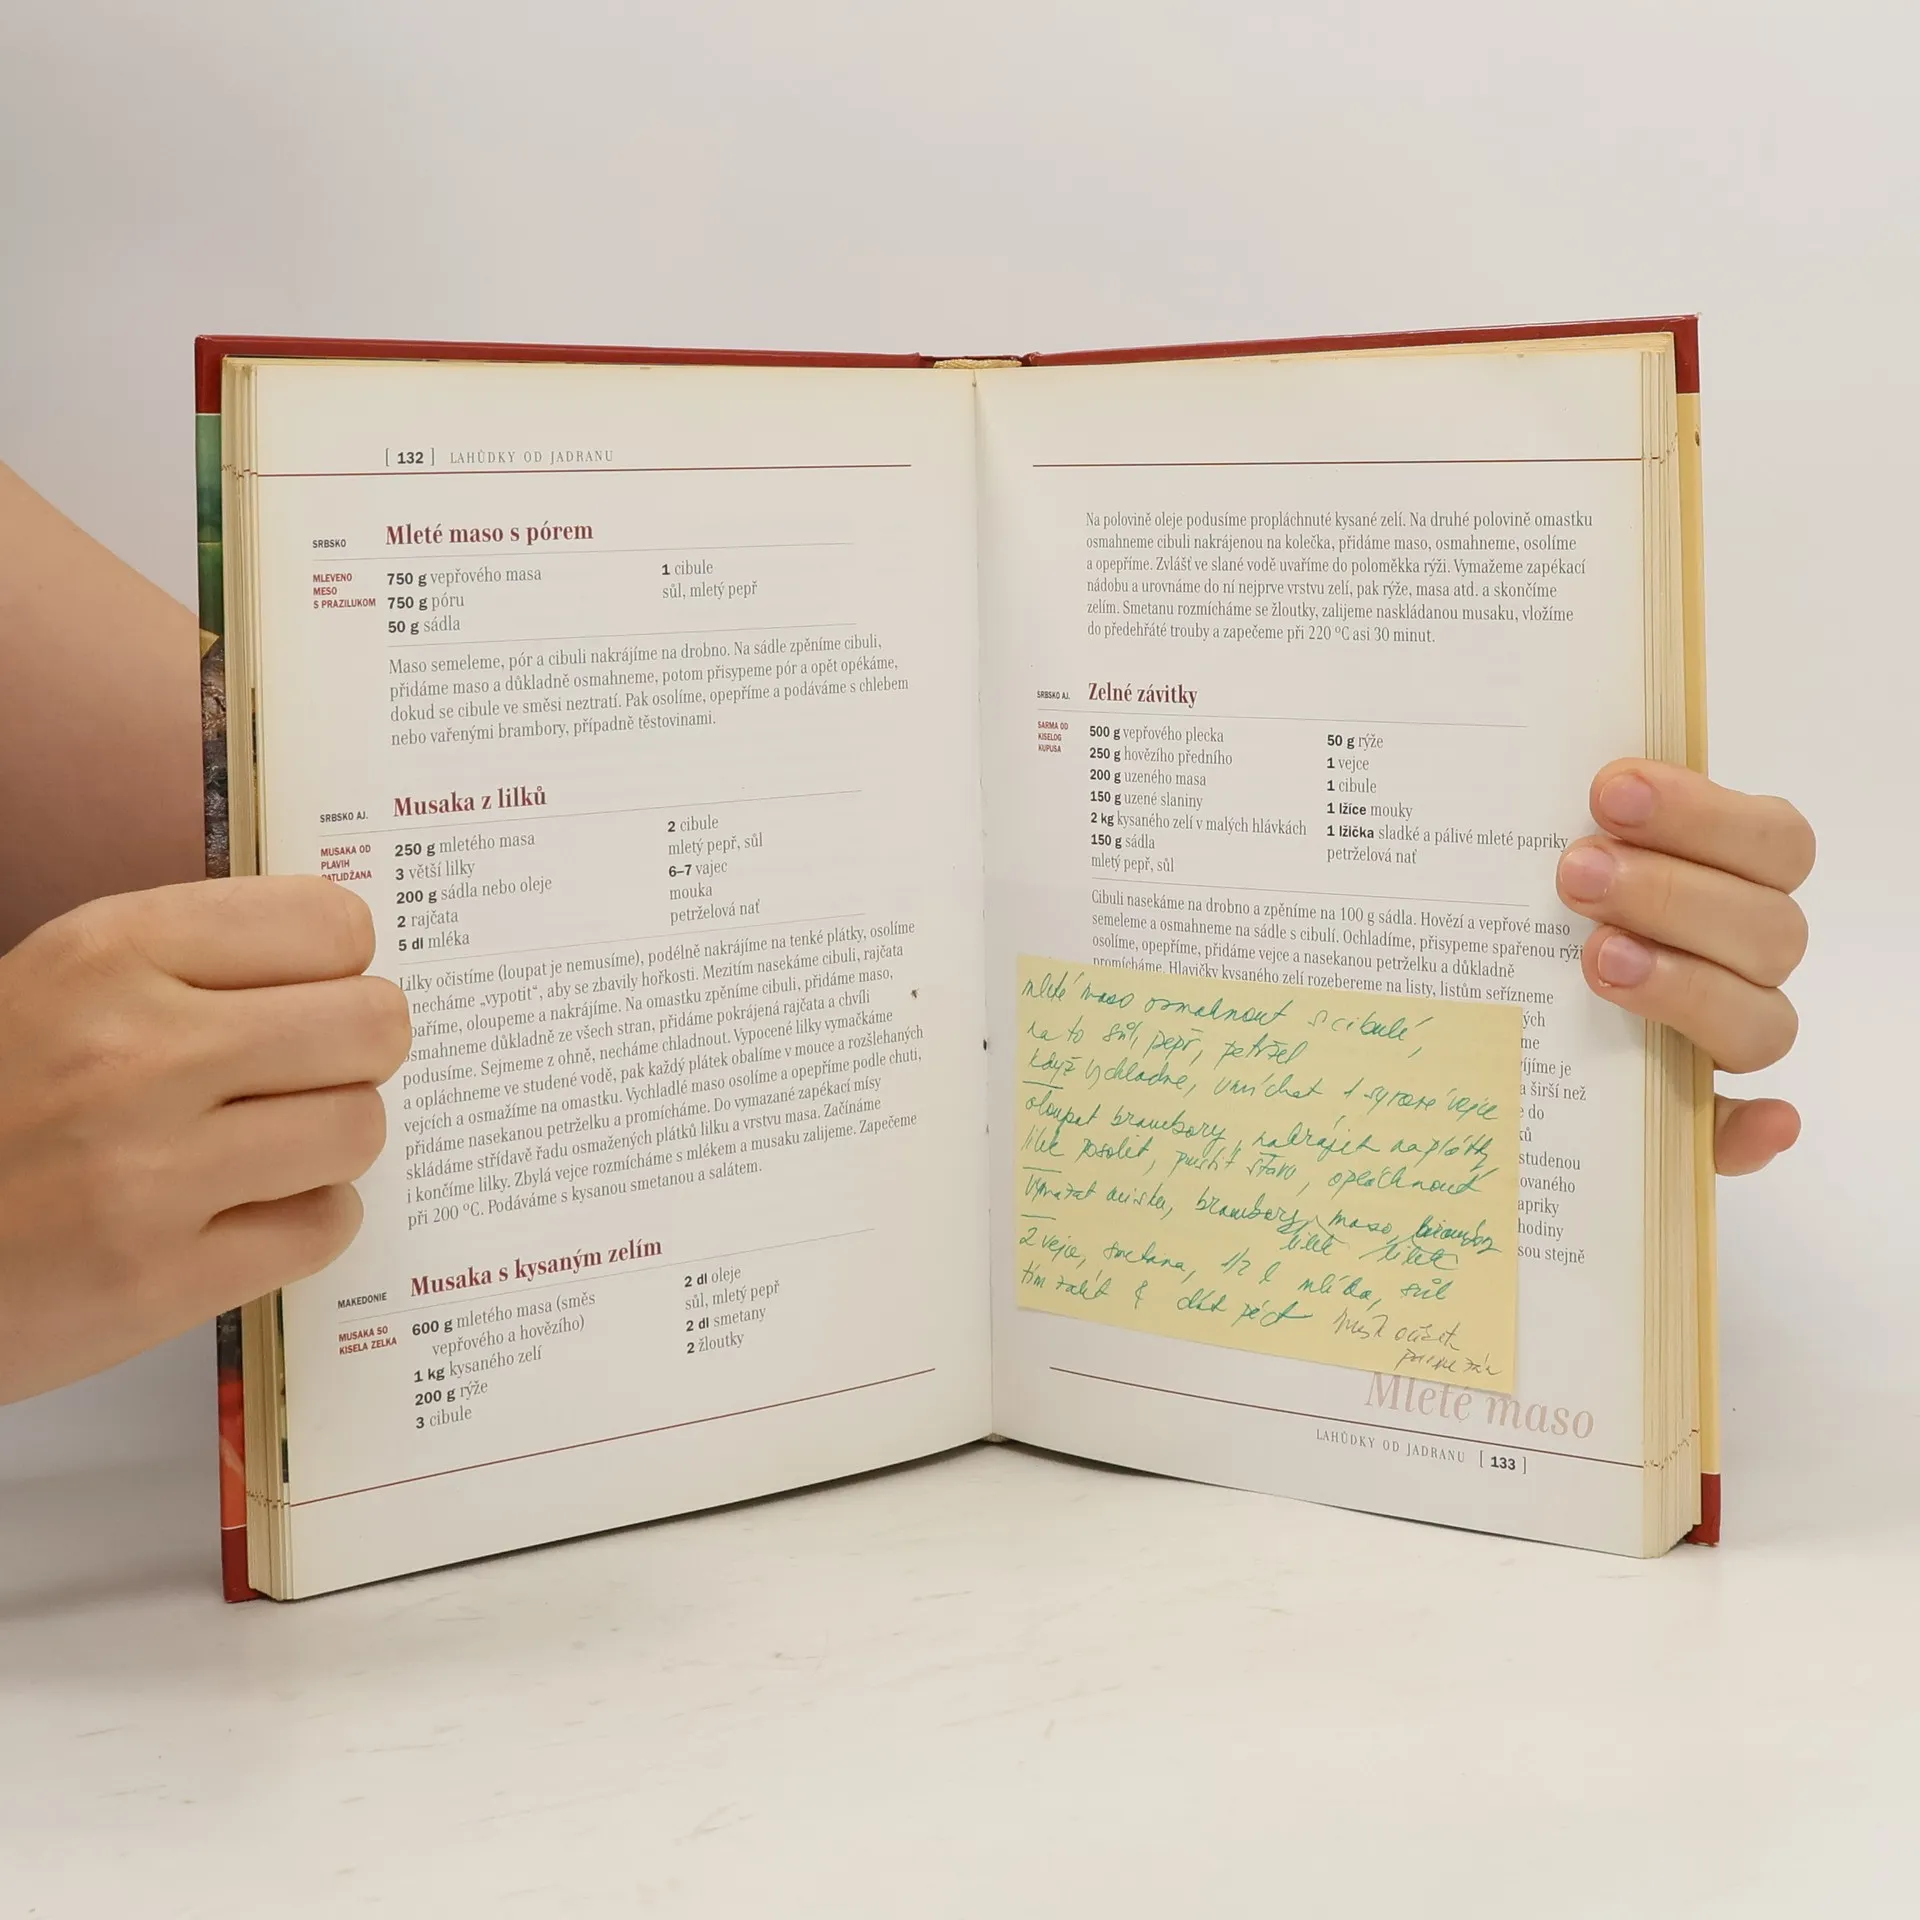 [ 132 ] LAHŮDKY OD JADRANU
SRBSKO
Mleté maso s pórem
MLEVENO
MESO
S PRAZILUKOM
750 g vepřového masa
750 g póru
50 g sádla
1 cibule
sůl, mletý pepř
Maso semeleme, pór a cibuli nakrájíme na drobno. Na sádle zpěníme cibuli,
přidáme maso a důkladně osmahneme, potom přisypeme pór a opět opékáme,
dokud se cibule ve směsi neztratí. Pak osolíme, opepříme a podáváme s chlebem
nebo vařenými brambory, případně těstovinami.
SRBSKO AJ.
Musaka z lilků
MUSAKA OD
PLAVIH
PATLIDŽANA
250 g mletého masa
3 větší lilky
200 g sádla nebo oleje
2 rajčata
5 dl mléka
2 cibule
mletý pepř, sůl
6–7 vajec
mouka
petrželová nať
Lilky očistíme (loupat je nemusíme), podélně nakrájíme na tenké plátky, osolíme
necháme „vypotit“, aby se zbavily hořkosti. Mezitím nasekáme cibuli, rajčata
paříme, oloupeme a nakrájíme. Na omastku zpěníme cibuli, přidáme maso,
osmahneme důkladně ze všech stran, přidáme pokrájená rajčata a chvíli
podusíme. Sejmeme z ohně, necháme chladnout. Vypocené lilky vymačkáme
a opláchneme ve studené vodě, pak každý plátek obalíme v mouce a rozšlehaných
vejcích a osmažíme na omastku. Vychladlé maso osolíme a opepříme podle chuti,
přidáme nasekanou petrželku a promícháme. Do vymazané zapékací mísy
skládáme střídavě řadu osmažených plátků lilku a vrstvu masa. Začínáme
i končíme lilky. Zbylá vejce rozmícháme s mlékem a musaku zalijeme. Zapečeme
při 200 °C. Podáváme s kysanou smetanou a salátem.
MAKEDONIE
Musaka s kysaným zelím
MUSAKA SO
KISELA ZELKA
600 g mletého masa (směs
vepřového a hovězího)
1 kg kysaného zelí
200 g rýže
3 cibule
2 dl oleje
sůl, mletý pepř
2 dl smetany
2 žloutky
Na polovině oleje podusíme propláchnuté kysané zelí. Na druhé polovině omastku
osmahneme cibuli nakrájenou na kolečka, přidáme maso, osmahneme, osolíme
a opepříme. Zvlášť ve slané vodě uvaříme do poloměkka rýži. Vymažeme zapékací
nádobu a urovnáme do ní nejprve vrstvu zelí, pak rýže, masa atd. a skončíme
zelím. Smetanu rozmícháme se žloutky, zalijeme naskládanou musaku, vložíme
do předehřáté trouby a zapečeme při 220 °C asi 30 minut.
SRBSKO AJ.
Zelné závitky
SARMA OD
KISELOG
KUPUSA
500 g vepřového plecka
250 g hovězího předního
200 g uzeného masa
150 g uzené slaniny
2 kg kysaného zelí v malých hlávkách
150 g sádla
mletý pepř, sůl
50 g rýže
1 vejce
1 cibule
1 lžíce mouky
1 lžička sladké a pálivé mleté papriky
petrželová nať
Cibuli nasekáme na drobno a zpěníme na 100 g sádla. Hovězí a vepřové maso
semeleme a osmahneme na sádle s cibulí. Ochladíme, přisypeme spařenou rýži
osolíme, opepříme, přidáme vejce a nasekanou petrželku a důkladně
promícháme. Hlavičky kysaného zelí rozebereme na listy, listům seřízneme
ých
me
íjíme je
a širší než
e do
ků
studenou
ovaného
apriky
hodiny
sou stejně
mleté maso osmahnout s cibulí,
na to sůl, pepř, petržel
když vychladne, vmíchat 1 syrové vejce
oloupat brambory, nakrájet na plátky
lilek posolit, pustit šťávu, opláchnout
vymazat misku, brambory, maso, brambory
lilek lilek
2 vejce, smetana, 1/2 l mléka, sůl
tím zalít & dát péct
Mleté maso
LAHŮDKY OD JADRANU [ 133 ]